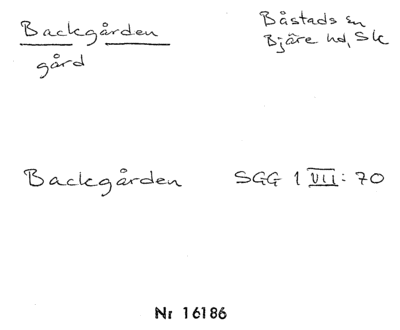 Backgården
Båstads sn
gård
Bjäre hd, Sk
Backgården SGG 1 VII: 70
Nr 16186